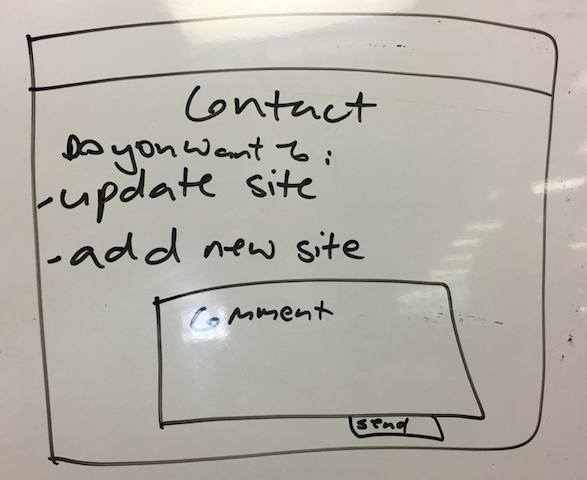 Contact
Do you want to:
- update site
- add new site
Comment
send